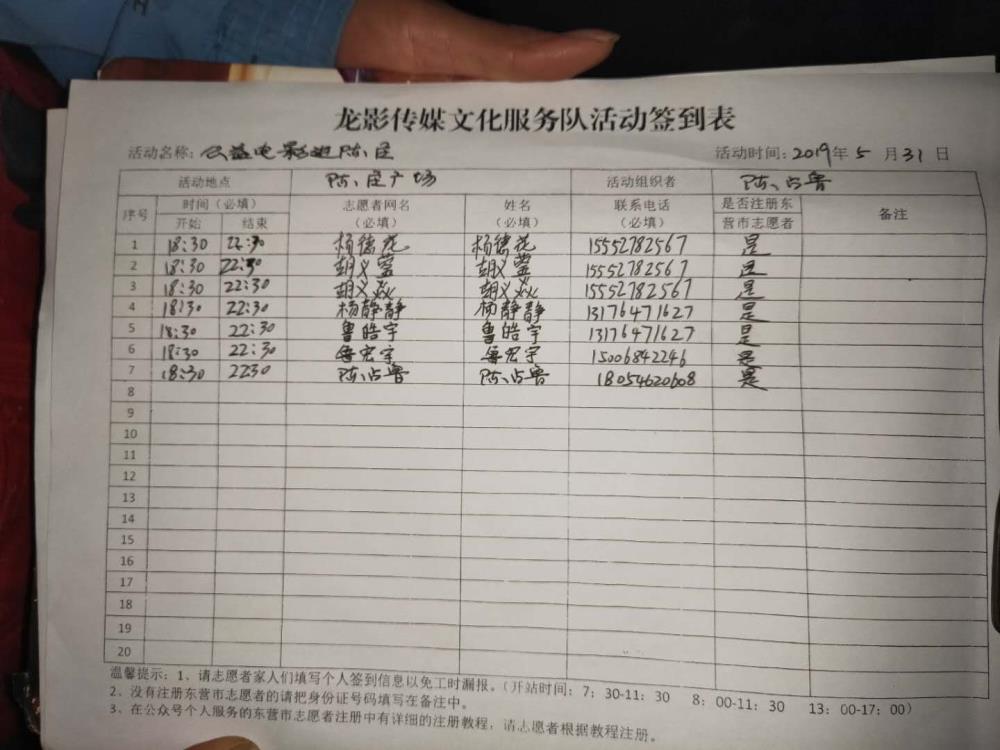 龙影传媒文化服务队活动签到表
活动名称：公益电影进陈庄 活动时间：2019年5月31日
活动地点 陈庄广场 活动组织者 陈占鲁
序号 时间（必填） 志愿者网名 姓名 联系电话 是否注册东 备注
开始 结束 （必填） （必填） （必填） 营市志愿者
1 18:30 22:30 杨德花 杨德花 15552782567 是
2 18:30 22:30 胡义莹 胡义莹 15552782567 是
3 18:30 22:30 胡义焱 胡义焱 15552782567 是
4 18:30 22:30 杨静静 杨静静 13176471627 是
5 18:30 22:30 鲁皓宇 鲁皓宇 13176471627 是
6 18:30 22:30 宏宇 宏宇 15006842246 是
7 18:30 2230 陈占鲁 陈占鲁 18054620608 是
8
9
10
11
12
13
14
15
16
17
18
19
20
温馨提示：1、请志愿者家人们填写个人签到信息以免工时漏报。（开站时间：7：30-11：30 8：00-11：30 13：00-17：00）
2、没有注册东营市志愿者的请把身份证号码填写在备注中。
3、在公众号个人服务的东营市志愿者注册中有详细的注册教程，请志愿者根据教程注册。